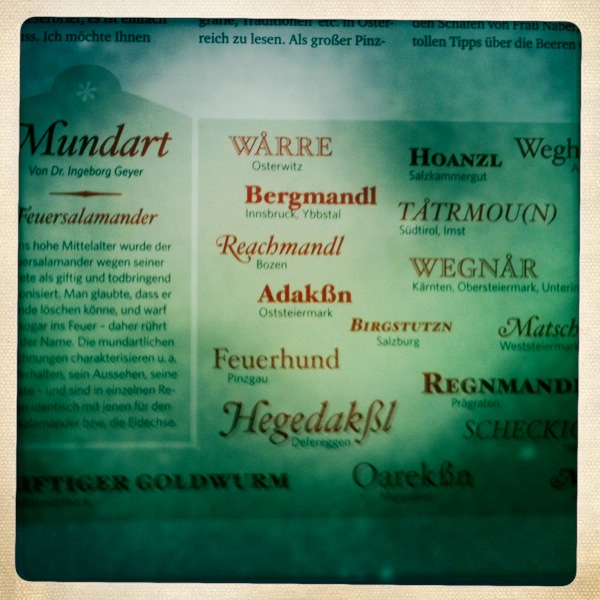 es ist einfach
ss. Ich möchte Ihnen
grafie, Traditionen etc. in Öster-
reich zu lesen. Als großer Pinz-
den Schafen von Frau
tollen Tipps über die Beeren
Mundart
Von Dr. Ingeborg Geyer
Feuersalamander
ns hohe Mittelalter wurde der
ersalamander wegen seiner
ete als giftig und todbringend
onisiert. Man glaubte, dass er
nde löschen könne, und warf
sogar ins Feuer – daher rührt
der Name. Die mundartlichen
chnungen charakterisieren u. a.
erhalten, sein Aussehen, seine
se – und sind in einzelnen Re-
n identisch mit jenen für den
salamander bzw. die Eidechse.
WÅRRE
Osterwitz
HOANZL
Salzkammergut
Wegh
Bergmandl
Innsbruck, Ybbstal
TÅTRMOU(N)
Südtirol, Imst
Reachmandl
Bozen
WEGNÅR
Kärnten, Obersteiermark, Unterin
Adakßn
Oststeiermark
BIRGSTUTZN
Salzburg
Matsch
Weststeiermark
Feuerhund
Pinzgau
REGNMANDL
Prägraten
Hegedakßl
Defereggen
SCHECKIG
IFTIGER GOLDWURM
Oarekßn